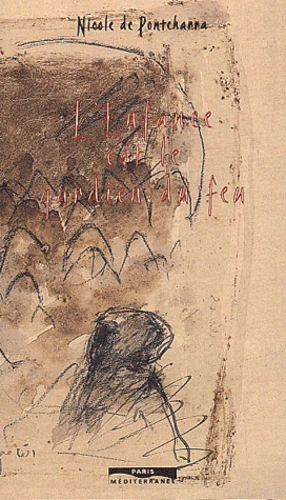 Nicole de Pontcharra
L'Enfance
est le
gardien du feu
PARIS
MÉDITERRANÉE